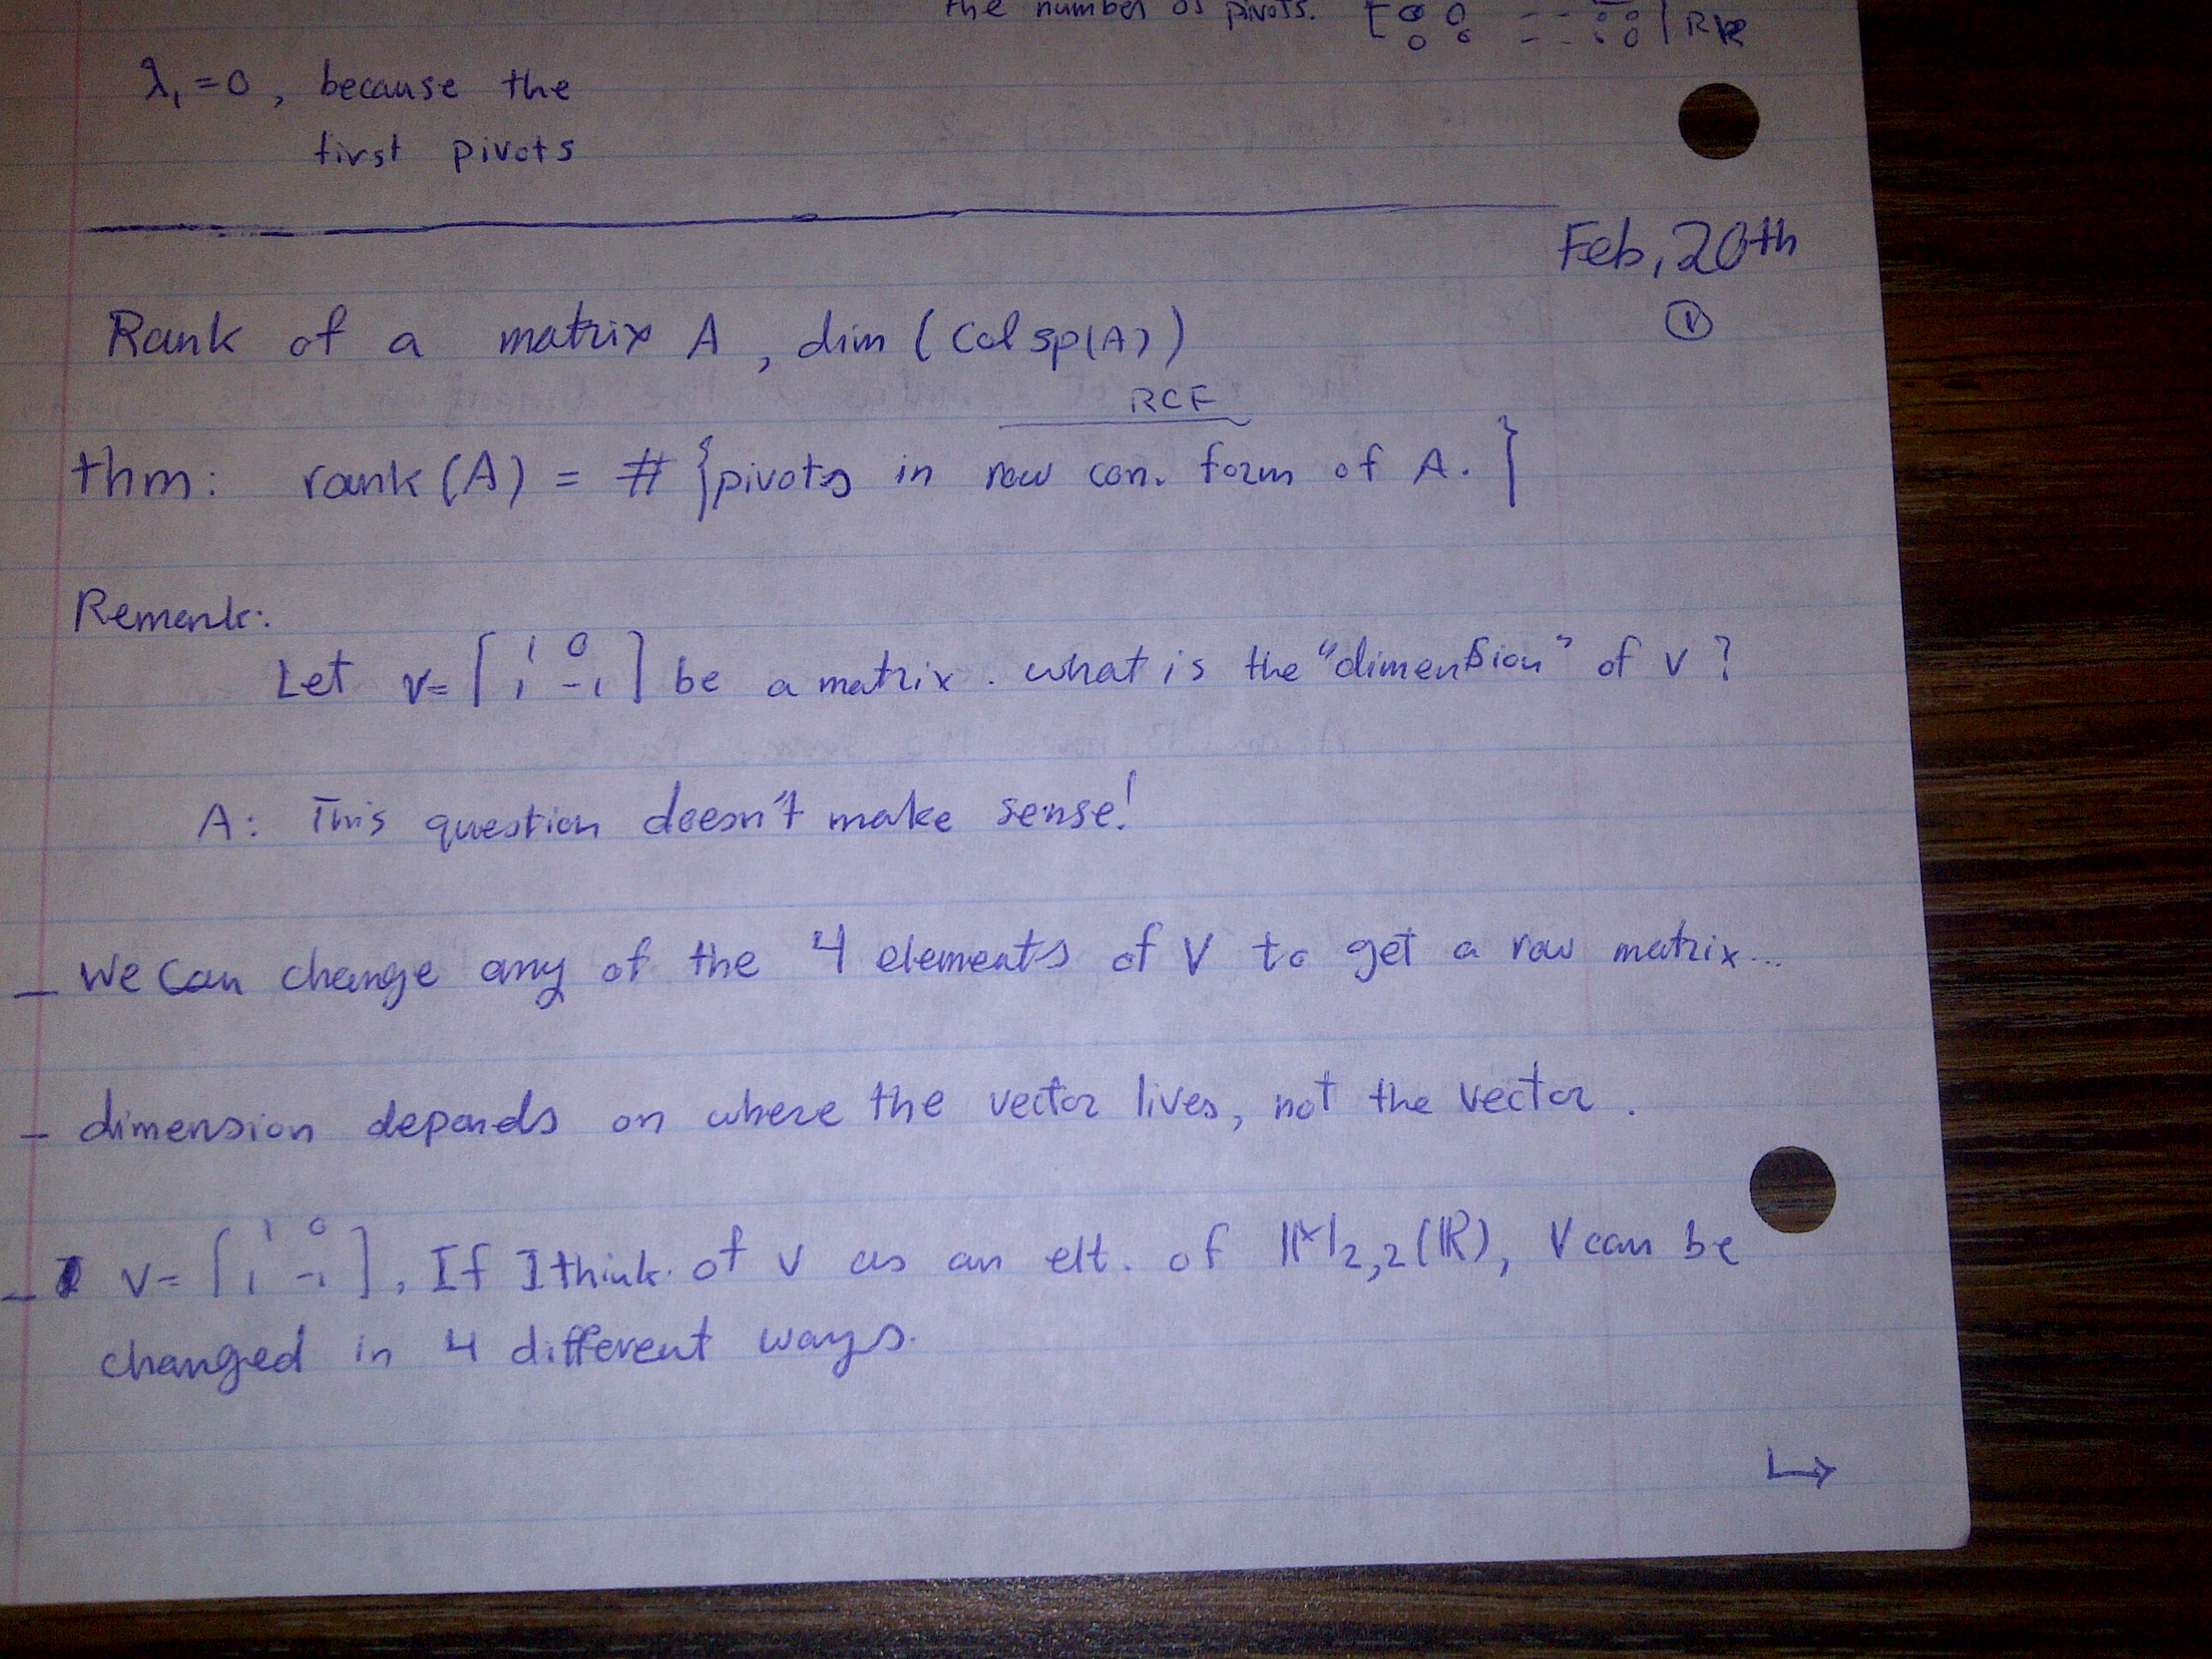 the number of pivots.
λ₁=0, because the
first pivots
Feb, 20th
Rank of a matrix A, dim (Col sp(A))
①
RCF
thm: rank(A) = # {pivots in row can. form of A.}
Remark:
Let v= [1 0
1 -1] be a matrix. what is the "dimension" of v?
A: This question doesn't make sense!
— We can change any of the 4 elements of V to get a row matrix...
- dimension depends on where the vector lives, not the vector.
— v= [1 0
1 -1], If I think of v as an elt. of M₂,₂(ℝ), v can be
changed in 4 different ways.
↳